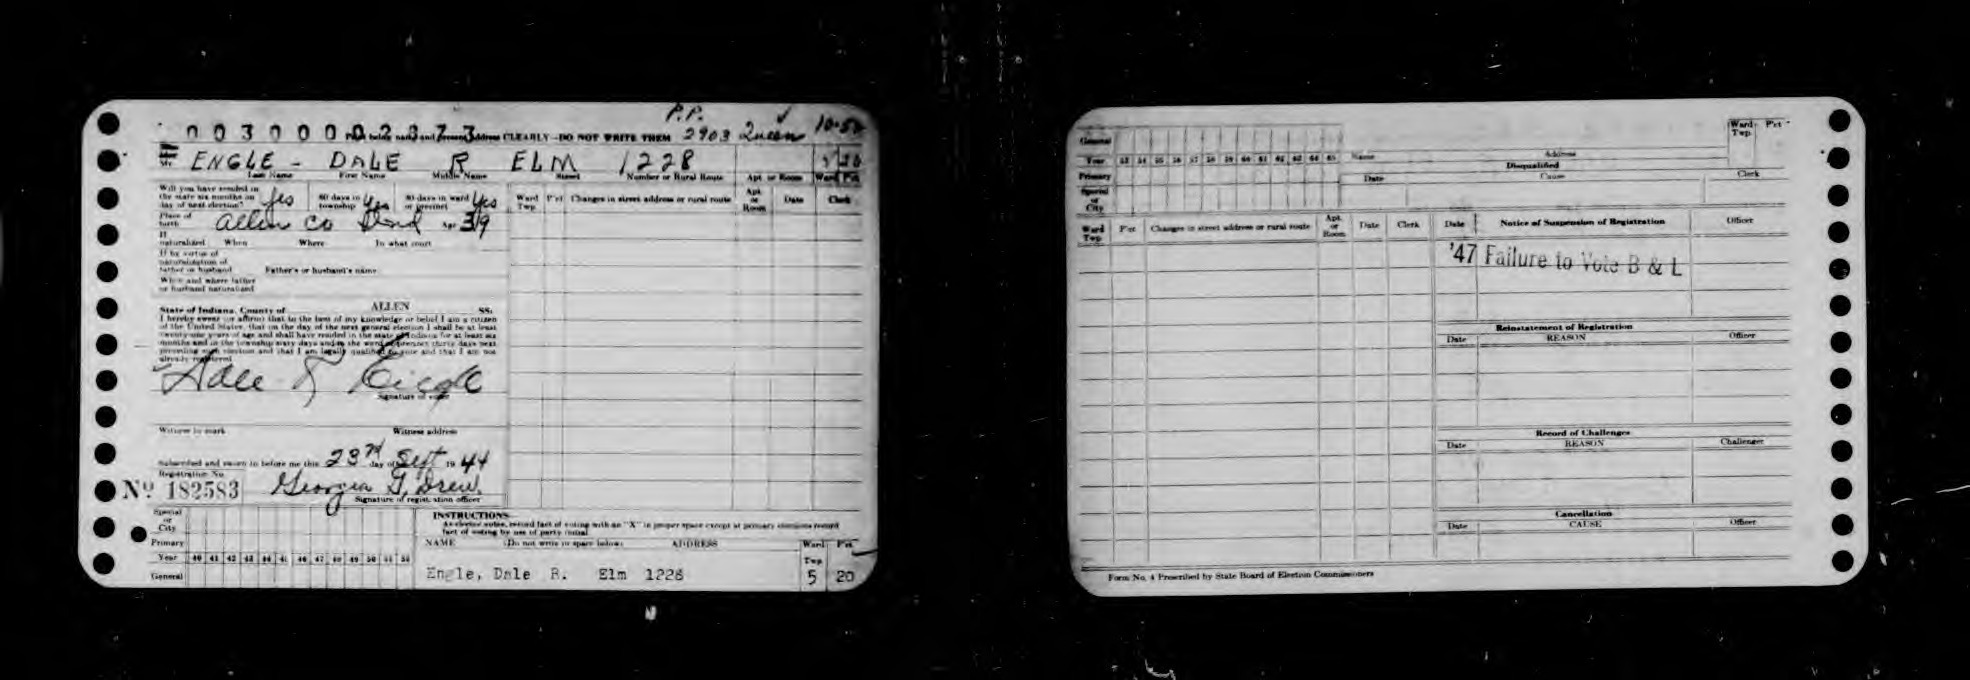 P.P.
0030000 2873 Print below name and present address CLEARLY—DO NOT WRITE THEM 2903 Queen 10-50
Mr. ENGLE - DALE R ELM 1228 5 20
Last Name First Name Middle Name Street Number or Rural Route Apt. or Room Ward Pct.
Will you have resided in the state six months on day of next election? Yes 60 days in township Yes 30 days in ward or precinct Yes
Ward Twp. P'ct Changes in street address or rural route Apt. or Room Date Clerk
Place of birth Allen Co Ind Age 39
If naturalized When Where In what court
If by virtue of naturalization of father or husband Father's or husband's name
When and where father or husband naturalized
State of Indiana, County of ALLEN SS:
I hereby swear (or affirm) that to the best of my knowledge or belief I am a citizen
of the United States, that on the day of the next general election I shall be at least
twenty-one years of age and shall have resided in the state of Indiana for at least six
months and in the township sixty days and in the ward or precinct thirty days next
preceding such election and that I am legally qualified to vote and that I am not
already registered
Dale R Engle
Signature of voter
Witness to mark Witness address
Subscribed and sworn to before me this 23rd day of Sept 1944
Registration No.
No 182583 Georgia G. Drew
Signature of registration officer
Special or City
Primary
Year 40 41 42 43 44 45 46 47 48 49 50 51 52
General
INSTRUCTIONS
As elector votes, record fact of voting with an "X" in proper space except at primary elections record
fact of voting by use of party initial
NAME (Do not write in space below) ADDRESS Ward Twp. Pct.
Engle, Dale R. Elm 1228 5 20
General
Year 53 54 55 56 57 58 59 60 61 62 63 64 65 Name Address
Ward Twp. P'ct
Primary Disqualified
Special or City Date Cause Clerk
Ward Twp. P'ct Changes in street address or rural route Apt. or Room Date Clerk
Date Notice of Suspension of Registration Officer
'47 Failure to Vote B & L
Reinstatement of Registration
Date REASON Officer
Record of Challenges
Date REASON Challenger
Cancellation
Date CAUSE Officer
Form No. 4 Prescribed by State Board of Election Commissioners